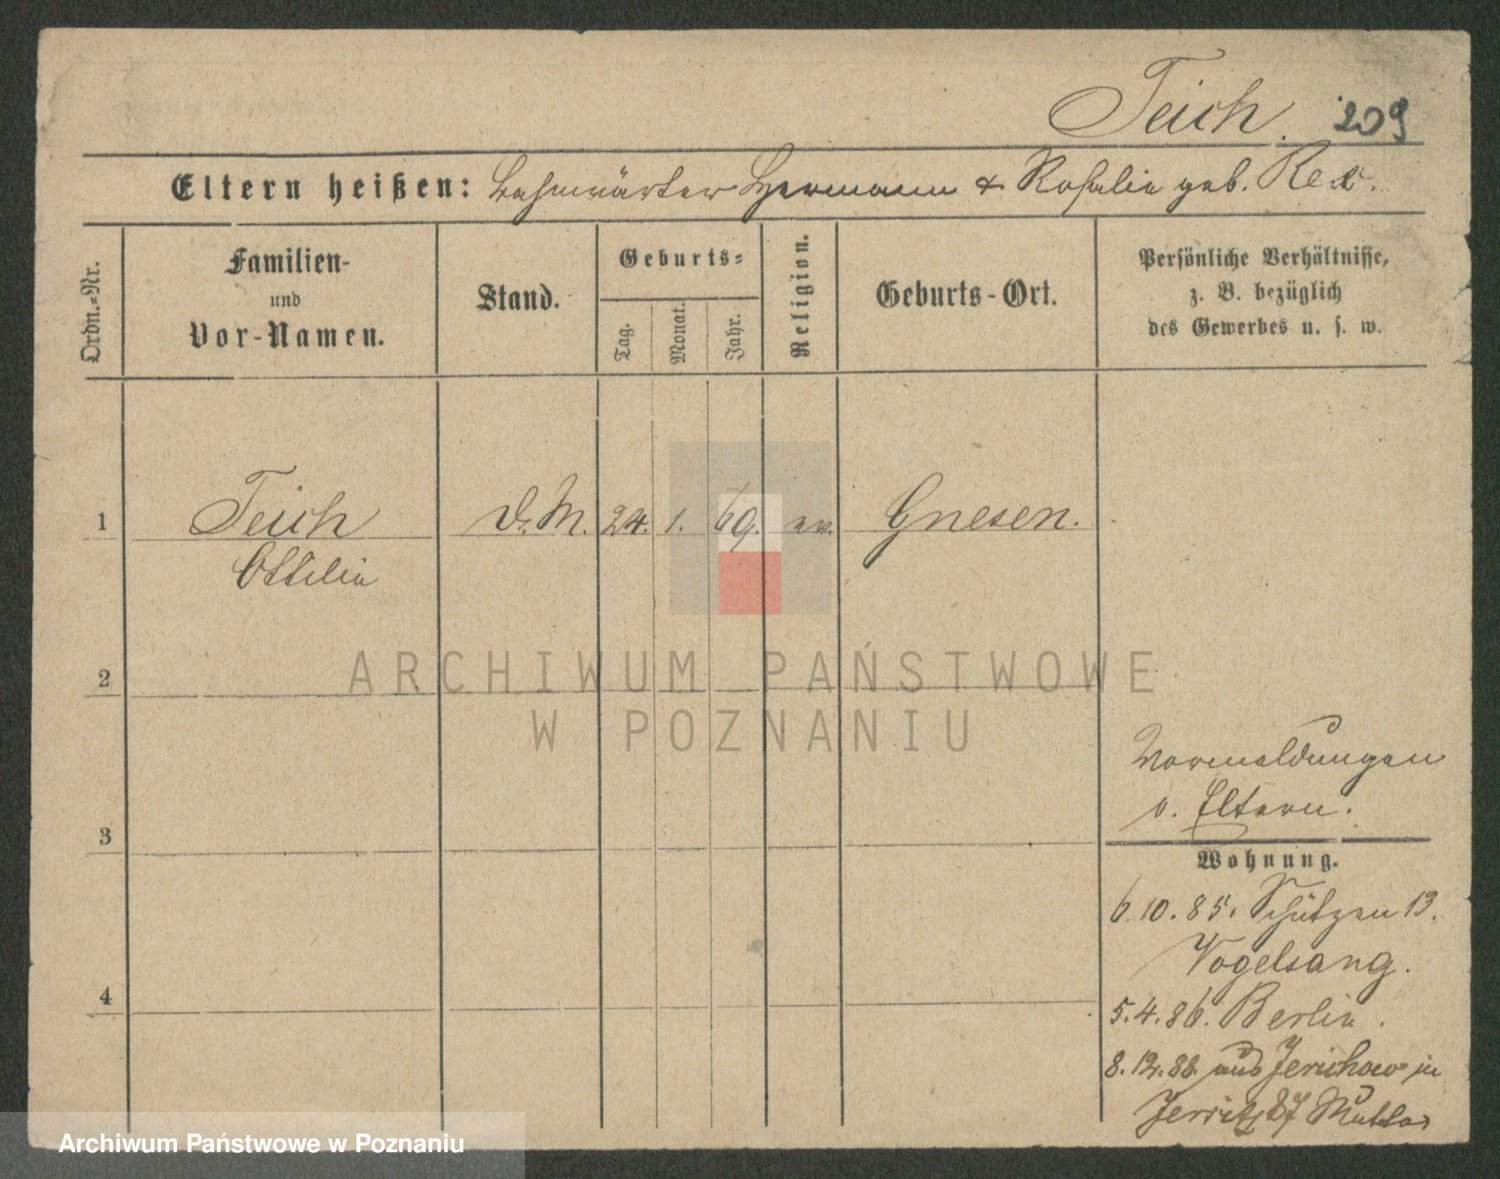 Teich. 209
Eltern heißen: Bahnwärter Hermann & Rosalie geb. Rex.
Ordn.-Nr.
Familien-
und
Vor-Namen.
Stand.
Geburts-
Tag.
Monat.
Jahr.
Religion.
Geburts-Ort.
Persönliche Verhältnisse,
z. B. bezüglich
des Gewerbes u. s. w.
1 Teich D. M. 24. 1. 69. ev. Gnesen.
Ottilie
ARCHIWUM PAŃSTWOWE
W POZNANIU
2
3
4
Vormeldungen
v. Eltern.
Wohnung.
6.10.85. Schützen 13.
Vogelsang.
5.4.86. Berlin.
8.12.88. aus Jerichow in
Jersitz 87 Mutter
Archiwum Państwowe w Poznaniu